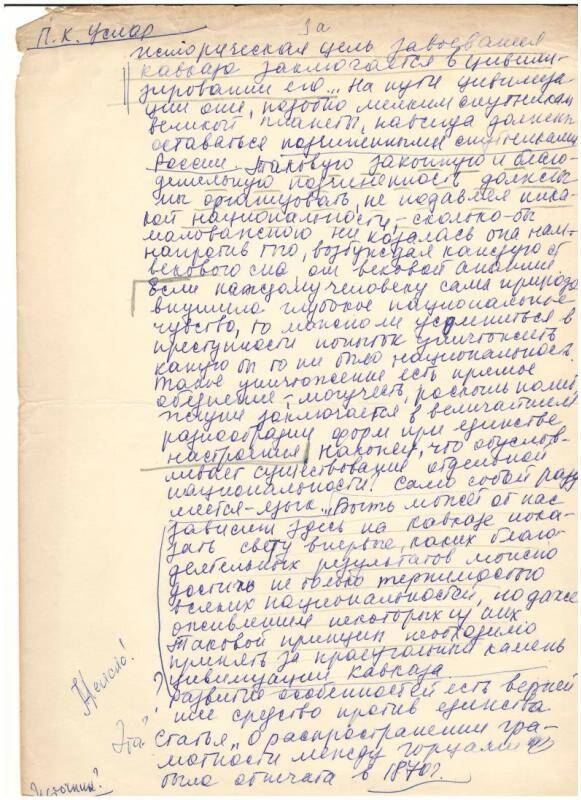 П. К. Услар
1а
историческая цель завоевания
Кавказа заключается в цивили-
зировании его... На пути цивилиза
ции они, подобно мелким спутникам
великой планеты, навсегда должны
оставаться подчиненными спутниками
России. Таковую законную и благо-
детельную подчиненность должны
мы организовать, не подавляя ника-
кой национальности, – сколько-бы
маловажною ни казалась она нам –
напротив того, возбуждая каждую от
векового сна от вековой апатии
Если каждому человеку сама природа
внушила глубокое национальное
чувство, то можно ли усомниться в
преступности попыток уничтожить
какую бы то ни было национальность
Такое уничтожение есть прямое
обеднение – могучесть, роскошь
жизни заключается в величайшем
разнообразии форм при единстве
настроения Наконец, что обуслов-
ливает существование отдельной
национальности? Само собой разу
меется – язык... Быть может от нас
зависит здесь на Кавказе пока-
зать свету впервые, каких благо-
детельных результатов можно
достичь не только терпимостью
всяких национальностей, но даже
оживлением некоторых из них
Таковой принцип необходимо
принять за краеугольный камень
? цивилизации Кавказа
Развитие особенностей есть верней
шее средство против единства
Неясно!
Эта?
Статья „О распространении гра-
мотности между горцами"
была отпечата в 1870г.
источник?